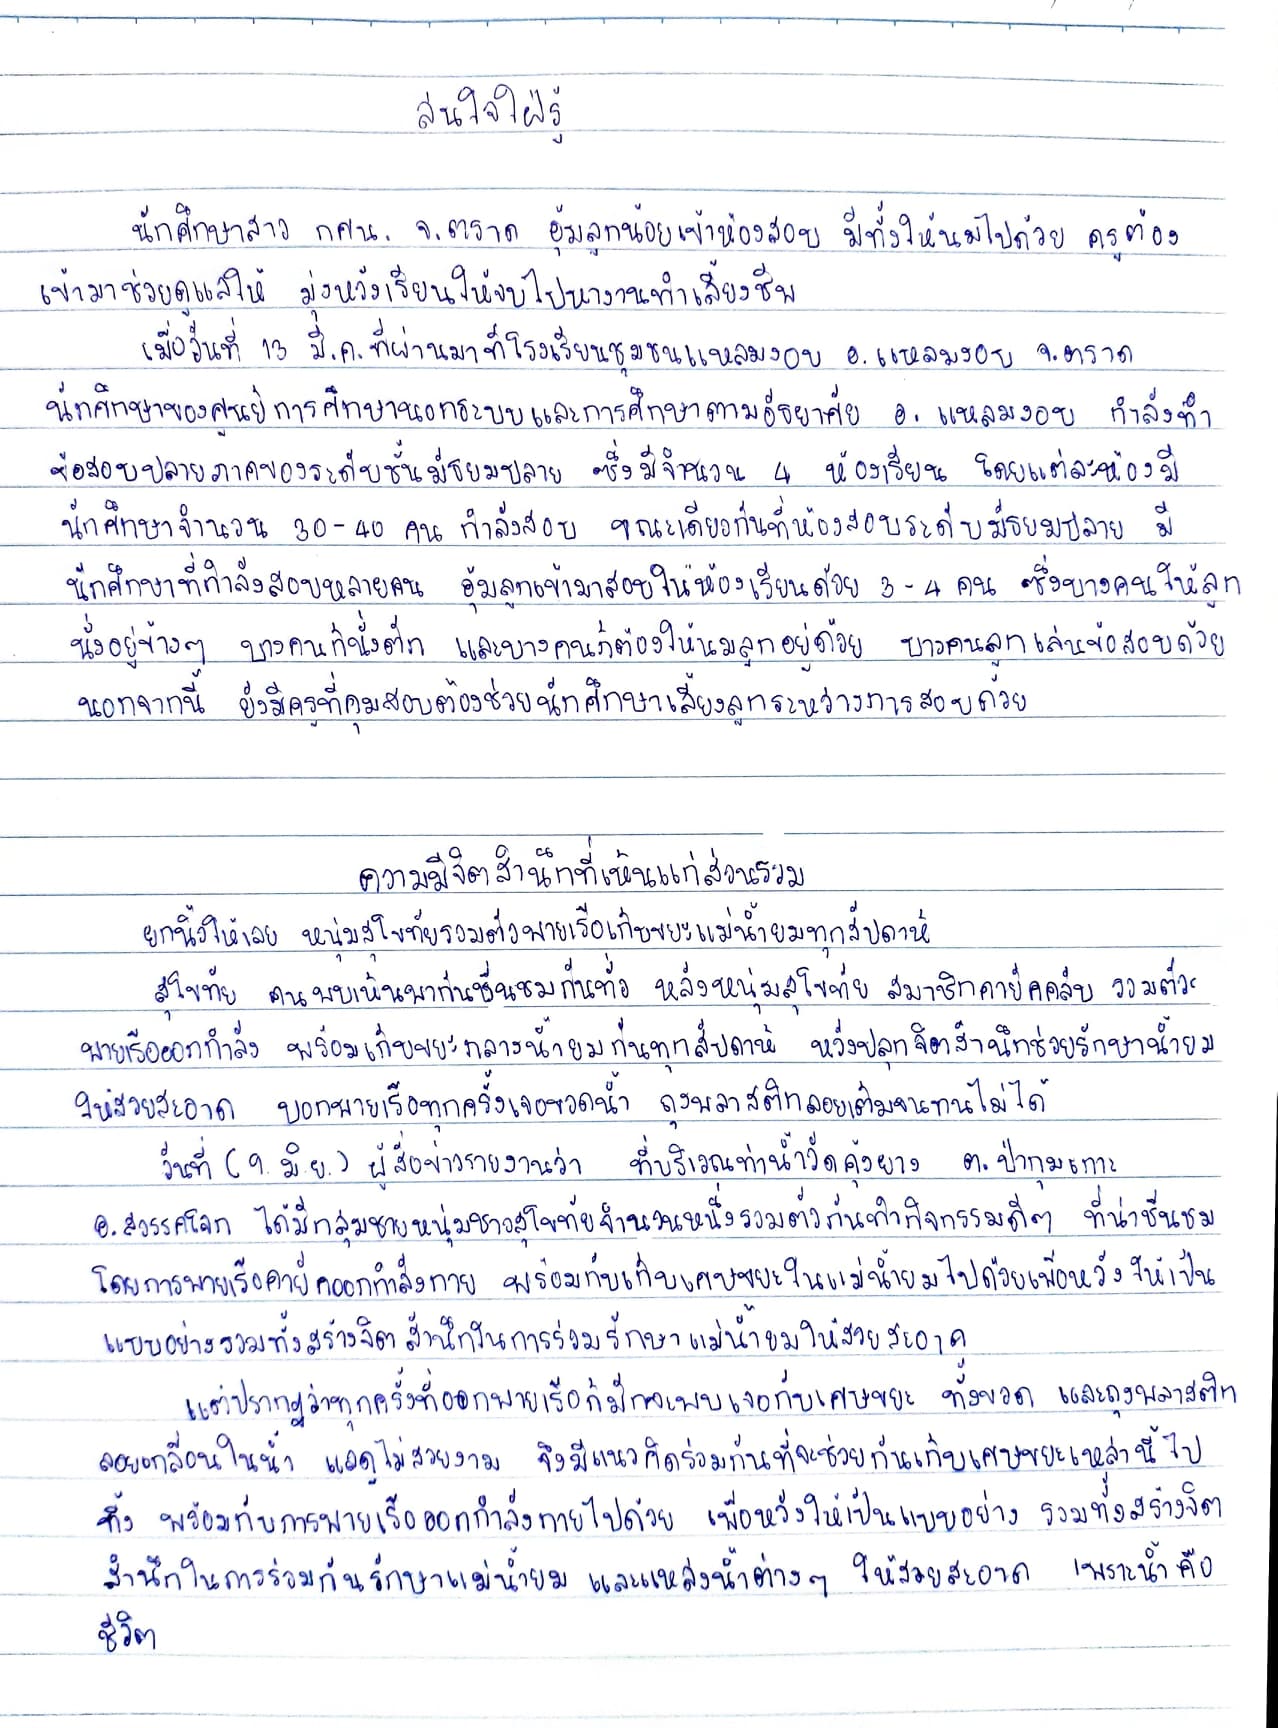 สนใจใฝ่รู้
นักศึกษาสาว กศน. จ.ตราด อุ้มลูกน้อยเข้าห้องสอบ มีทั้งให้นมไปด้วย ครูต้อง
เข้ามาช่วยดูแลให้ มุ่งหวังเรียนให้จบไปหางานทำเลี้ยงชีพ
เมื่อวันที่ 13 มี.ค.ที่ผ่านมาที่โรงเรียนชุมชนแหลมงอบ อ.แหลมงอบ จ.ตราด
นักศึกษาของศูนย์การศึกษานอกระบบและการศึกษาตามอัธยาศัย อ. แหลมงอบ กำลังทำ
ข้อสอบปลายภาคของระดับชั้นมัธยมปลาย ซึ่งมีจำนวน 4 ห้องเรียน โดยแต่ละห้องมี
นักศึกษาจำนวน 30-40 คน กำลังสอบ ขณะเดียวกันที่ห้องสอบระดับมัธยมปลาย มี
นักศึกษาที่กำลังสอบหลายคน อุ้มลูกเข้ามาสอบในห้องเรียนด้วย 3-4 คน ซึ่งบางคนให้ลูก
นั่งอยู่ข้างๆ บางคนก็นั่งตัก และบางคนก็ต้องให้นมลูกอยู่ด้วย บางคนลูกเล่นข้อสอบด้วย
นอกจากนี้ ยังมีครูที่คุมสอบต้องช่วยนักศึกษาเลี้ยงลูกระหว่างการสอบด้วย
ความมีจิตสำนึกที่เห็นแก่ส่วนรวม
ยกนิ้วให้เลย หนุ่มสุโขทัยรวมตัวพายเรือเก็บขยะแม่น้ำยมทุกสัปดาห์
สุโขทัย คนพบเห็นพากันชื่นชมกันทั่ว หลังหนุ่มสุโขทัย สมาชิกคายัคคลับ รวมตัวะ
พายเรือออกกำลัง พร้อมเก็บขยะกลางน้ำยมกันทุกสัปดาห์ หวังปลุกจิตสำนึกช่วยรักษาน้ำยม
ให้สวยสะอาด บอกพายเรือทุกครั้งเจอขวดน้ำ ถุงพลาสติกลอยเต็มจนทนไม่ได้
วันที่ (9 มิ.ย.) ผู้สื่อข่าวรายงานว่า ที่บริเวณท่าน้ำวัดคุ้งยาง ต.ป่ากุมเกาะ
อ.สวรรคโลก ได้มีกลุ่มชายหนุ่มชาวสุโขทัยจำนวนหนึ่งรวมตัวกันทำกิจกรรมดีๆ ที่น่าชื่นชม
โดยการพายเรือคายัคออกกำลังกาย พร้อมกับเก็บเศษขยะในแม่น้ำยมไปด้วยเพื่อหวังให้เป็น
แบบอย่างรวมทั้งสร้างจิตสำนึกในการร่วมรักษาแม่น้ำยมให้สวยสะอาด
แต่ปรากฏว่าทุกครั้งที่ออกพายเรือก็มักจะพบเจอกับเศษขยะ ทั้งขวด และถุงพลาสติก
ลอยเกลื่อนในน้ำ แลดูไม่สวยงาม จึงมีแนวคิดร่วมกันที่จะช่วยกันเก็บเศษขยะเหล่านี้ไป
ทิ้ง พร้อมกับการพายเรือออกกำลังกายไปด้วย เพื่อหวังให้เป็นแบบอย่าง รวมทั้งสร้างจิต
สำนึกในการร่วมกันรักษาแม่น้ำยม และแหล่งน้ำต่างๆ ให้สวยสะอาด เพราะน้ำคือ
ชีวิต